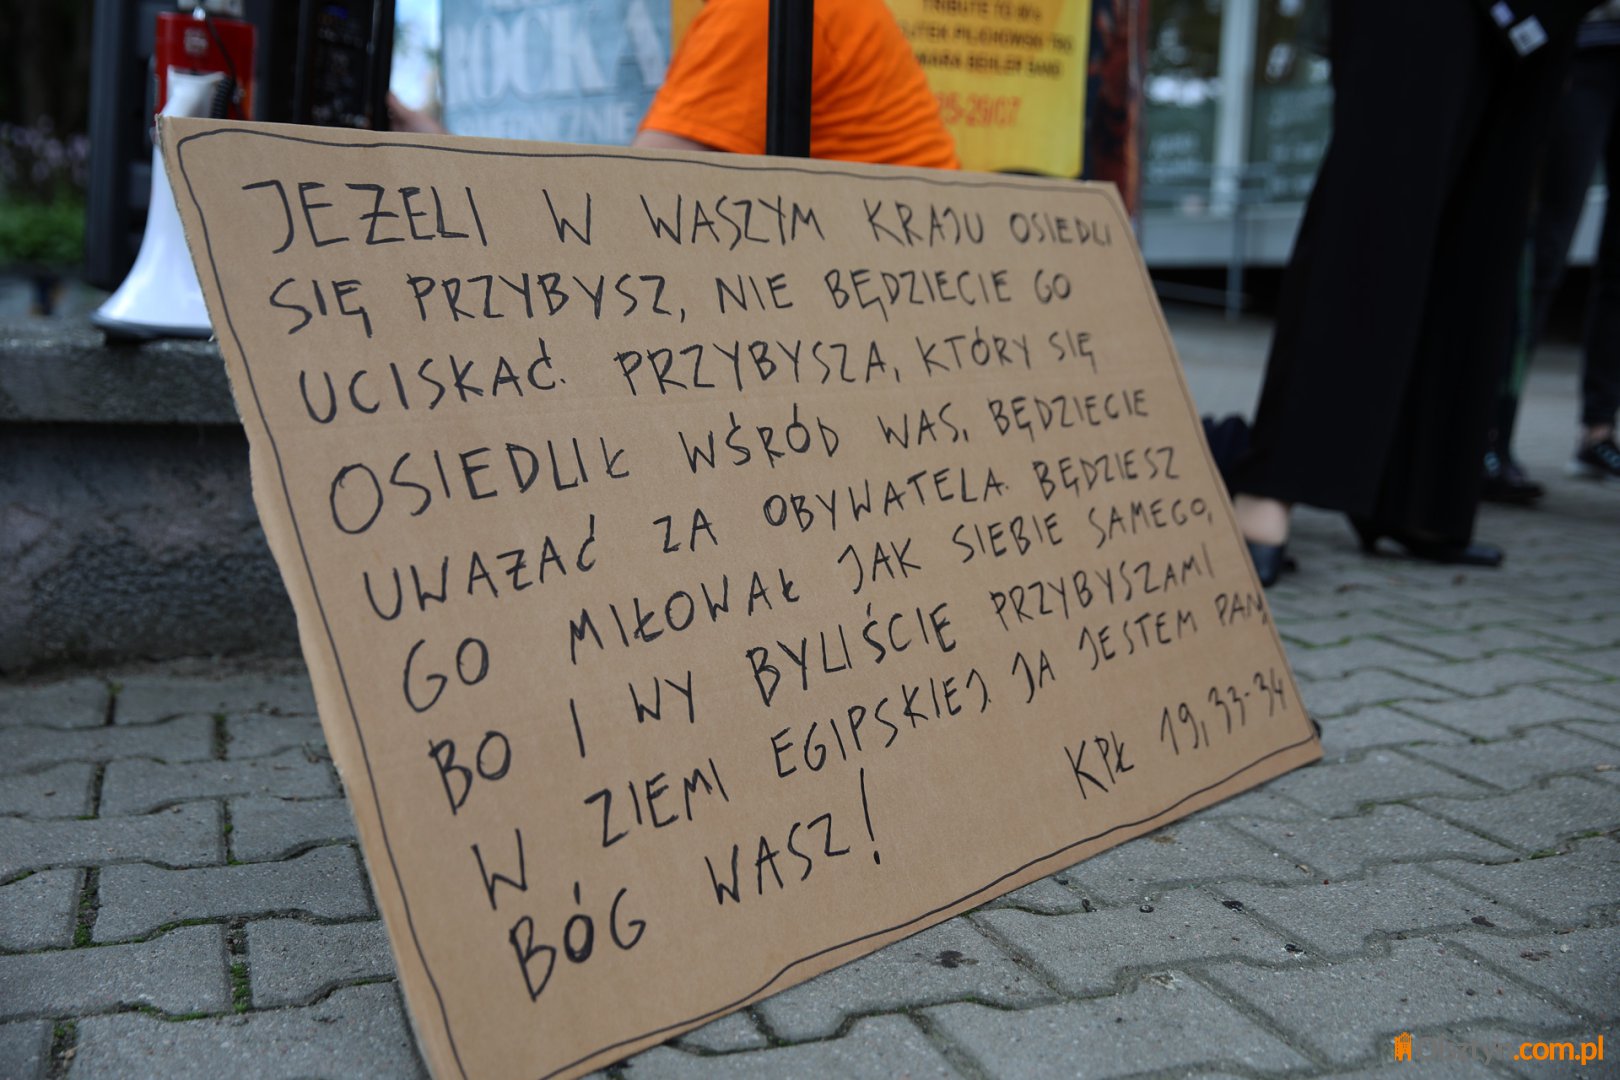 ROCKA
TRIBUTE TO
BAND
25-29/07
JEŻELI W WASZYM KRAJU OSIEDLI
SIĘ PRZYBYSZ, NIE BĘDZIECIE GO
UCISKAĆ. PRZYBYSZA, KTÓRY SIĘ
OSIEDLIŁ WŚRÓD WAS, BĘDZIECIE
UWAŻAĆ ZA OBYWATELA. BĘDZIESZ
GO MIŁOWAŁ JAK SIEBIE SAMEGO,
BO I WY BYLIŚCIE PRZYBYSZAMI
W ZIEMI EGIPSKIEJ. JA JESTEM PAN,
BÓG WASZ!
KPŁ 19, 33-34
.com.pl